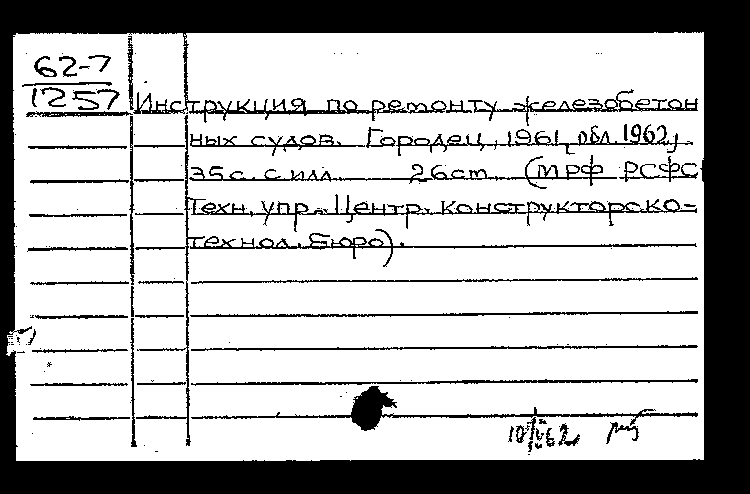 62-7
1257
Инструкция по ремонту железобетон
ных судов. Городец, 1961, обл. 1962,
35 с. с илл. 26 cm (МРФ РСФС
Техн. упр. Центр. конструкторско-
технол. бюро).
10/IV 62